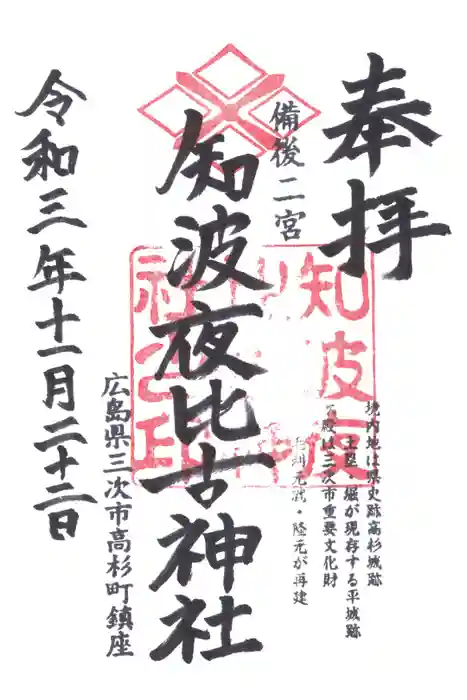 奉拝
境内地は県史跡高杉城跡
土塁・堀が現存する平城跡
本殿は三次市重要文化財
毛利元就・隆元が再建
備後二宮
知波夜比古神社
知波夜
社之印
広島県三次市高杉町鎮座
令和三年十一月二十三日